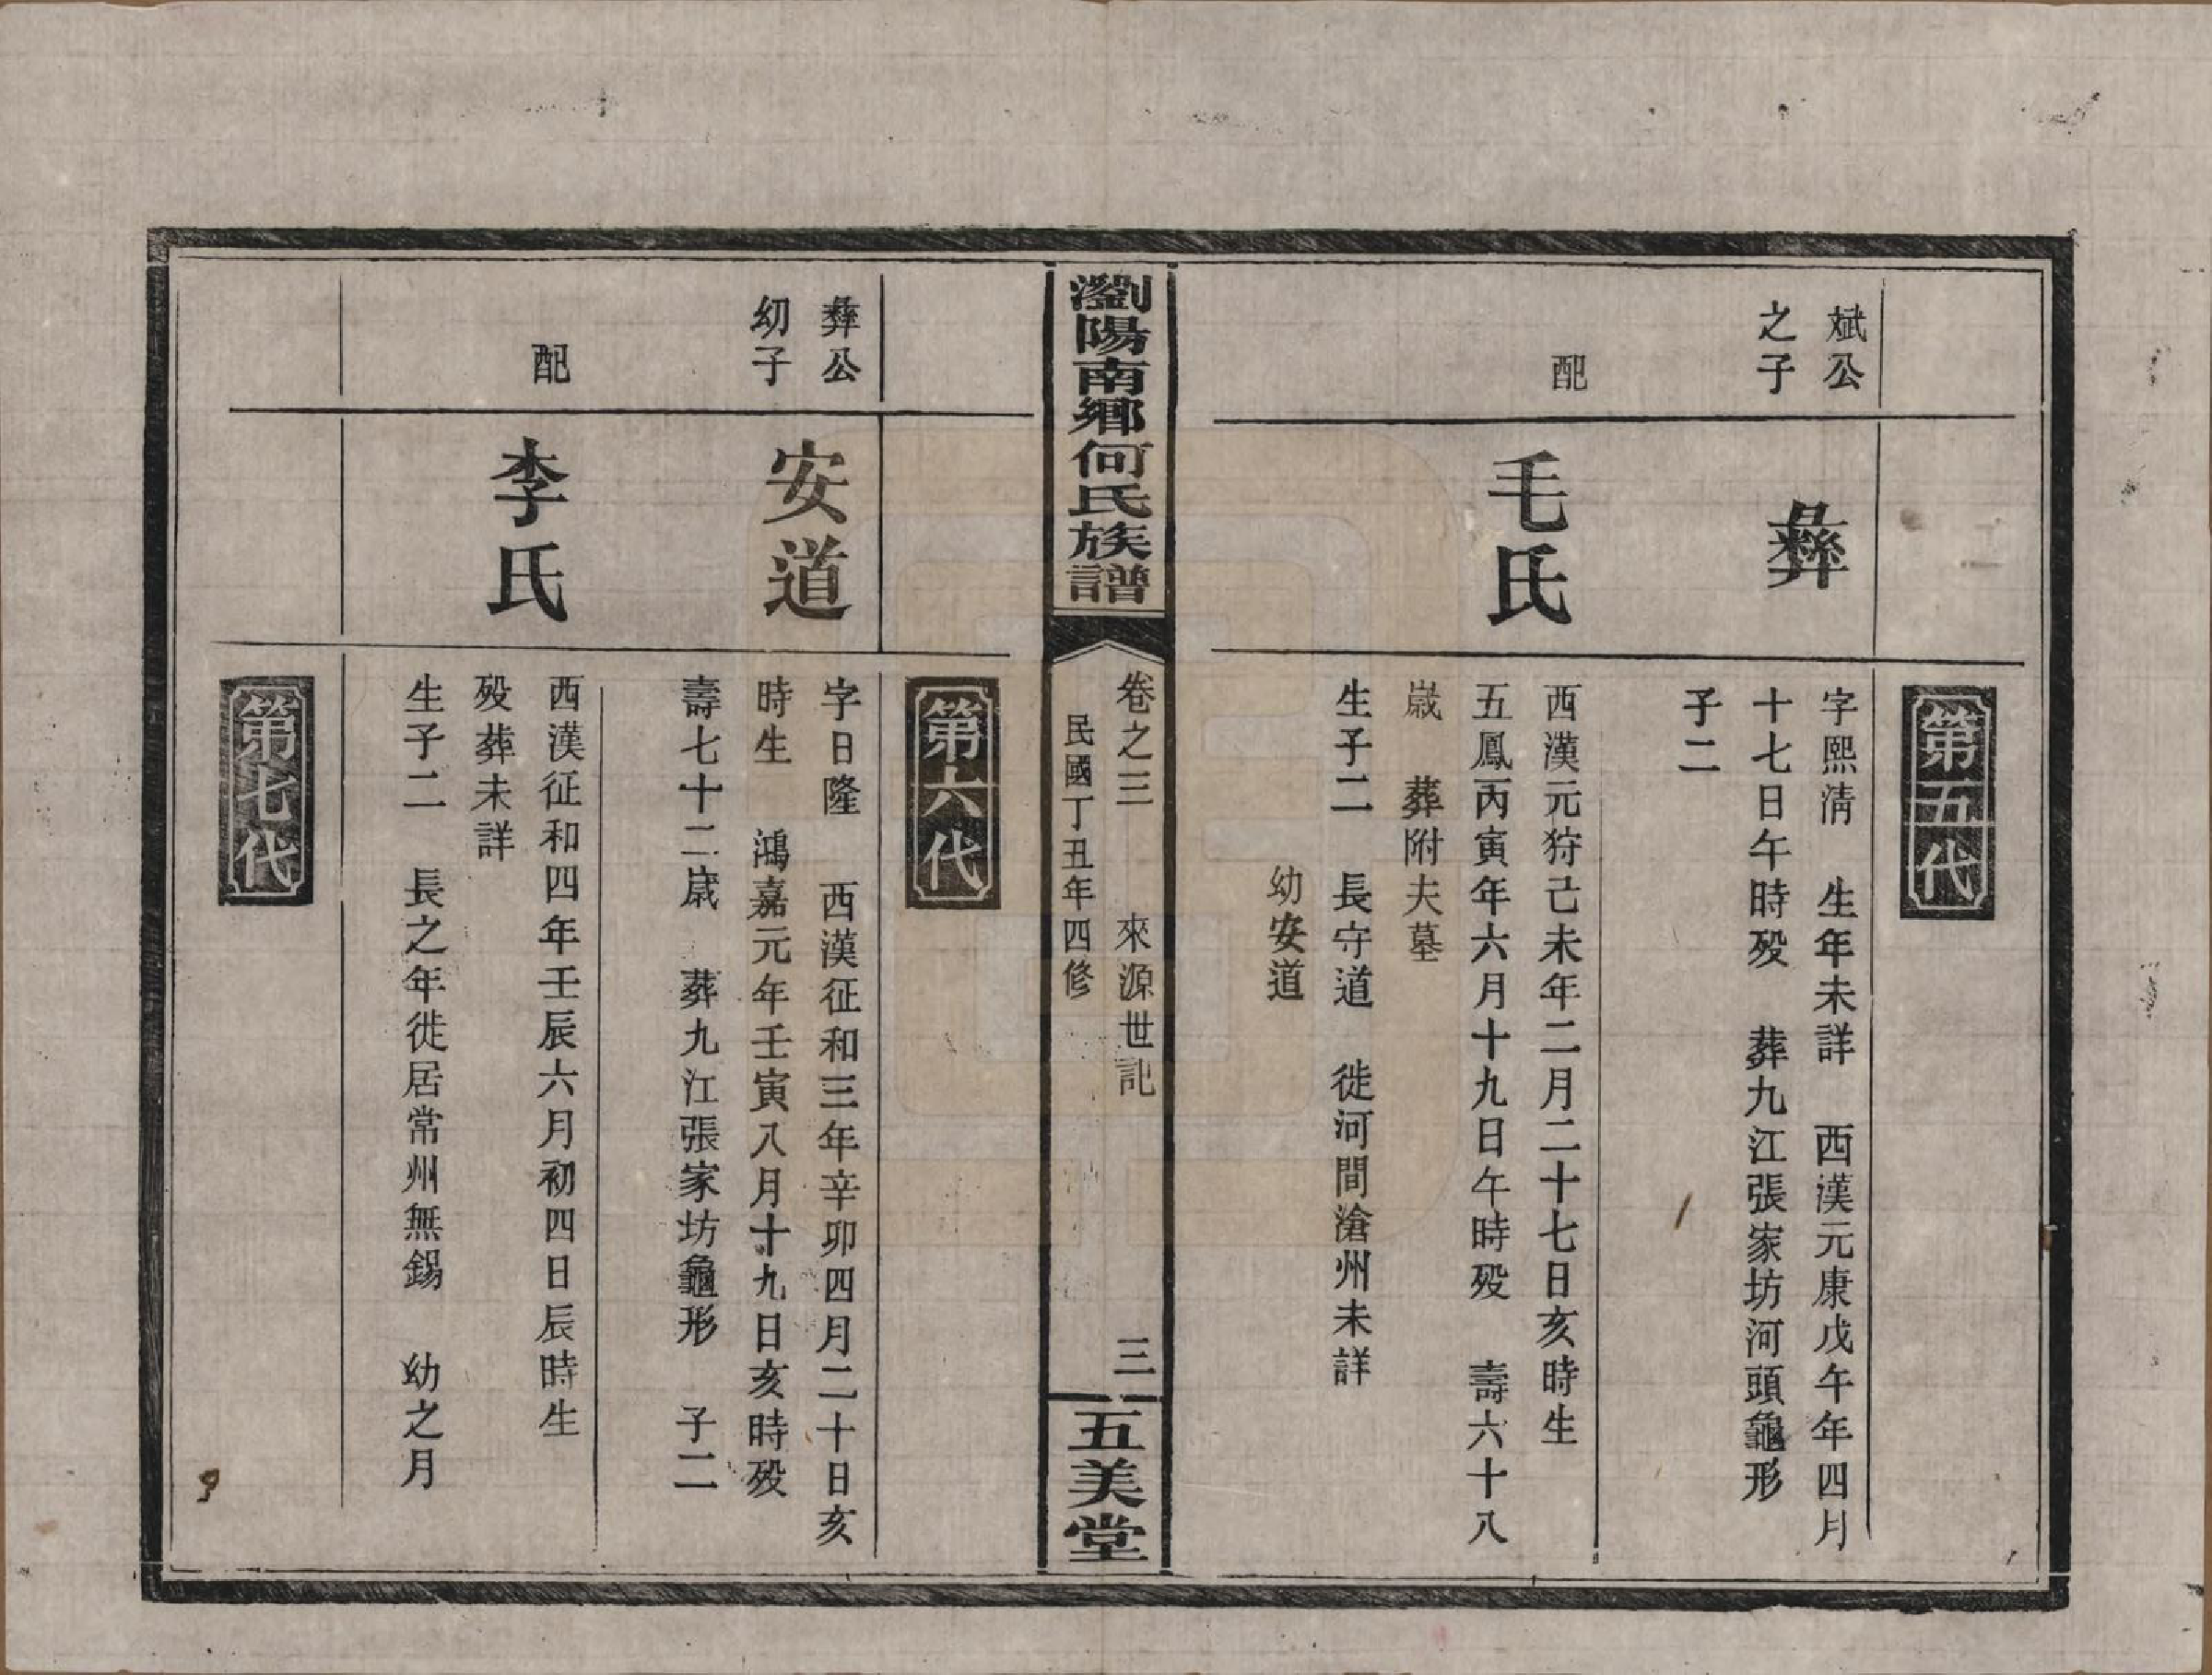 第五代
斌公
之子
彝
字熙淸　生年未詳　西漢元康戊午年四月
十七日午時殁　葬九江張家坊河頭龜形
子二
配
毛氏
西漢元狩己未年二月二十七日亥時生
五鳳丙寅年六月十九日午時殁　壽六十八
歲　葬附夫墓
生子二　長守道　徙河間滄州未詳
幼安道
瀏陽南鄉何氏族譜
卷之三　來源世記　三
民國丁丑年四修
五美堂
第六代
彝公
幼子
安道
字日隆　西漢征和三年辛卯四月二十日亥
時生　鴻嘉元年壬寅八月十九日亥時殁
壽七十二歲　葬九江張家坊龜形　子二
配
李氏
西漢征和四年壬辰六月初四日辰時生
殁葬未詳
生子二　長之年徙居常州無錫　幼之月
第七代